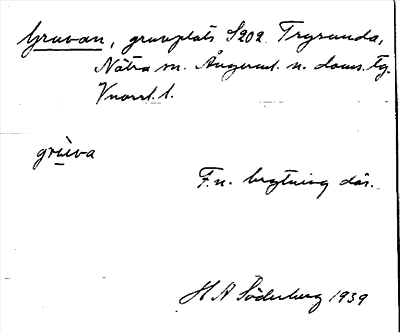 Gruvan, gruvplats S202 Trysunda,
Nätra sn. Ångerml. n. doms. tg.
Vnorrl. l.
grùva
F.n. brytning där.
H A Söderberg 1939